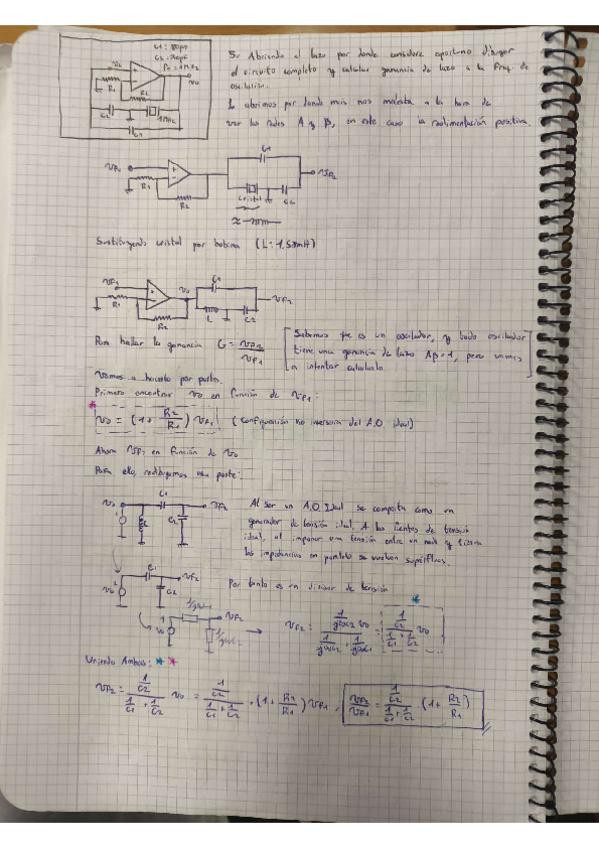 C1 = 100pF
C2 =
f0 = 1MHz
V2
V0
R1
R2
C2
1MHz
C1
5. Abriendo el lazo por donde considere oportuno dibujar
el circuito completo y calcular ganancia de lazo a la freq. de
oscilación.
Lo abrimos por donde más nos molesta a la hora de
ver las redes A y β, en este caso la realimentación positiva.
VF1
R1
R2
C1
Cristal
C2
VF2
Sustituyendo cristal por bobina (L = 1,57mH)
VF1
R1
R2
V0
C1
L
C2
VF2
Para hallar la ganancia G = VF2/VF1
[Sabemos que es un oscilador, y todo oscilador
tiene una ganancia de lazo Aβ=1, pero vamos
a intentar calcularlo]
Vamos a hacerlo por partes.
Primero encontrar V0 en función de VF1:
V0 = (1 + R2/R1) VF1 (Configuración no inversora del A.O ideal)
Ahora VF2 en función de V0
Para ello, redibujamos una parte:
V0
C1
VF2
L
C2
Al ser un A.O. Ideal se comporta como un
generador de tensión ideal. A las fuentes de tensión
ideal, al imponer una tensión entre un nodo y tierra
las impedancias en paralelo se vuelven supérfluas.
V0
C1
VF2
C2
Por tanto es un divisor de tensión
V0
1/jωC1
VF2
1/jωC2
VF2 = (1/jωC2) V0 / (1/jωC2 + 1/jωC1) = (1/C2) / (1/C1 + 1/C2) V0
Uniendo Ambas:
VF2 = (1/C2) / (1/C1 + 1/C2) V0 = (1/C2) / (1/C1 + 1/C2) · (1 + R2/R1) VF1, VF2/VF1 = (1/C2) / (1/C1 + 1/C2) (1 + R2/R1)